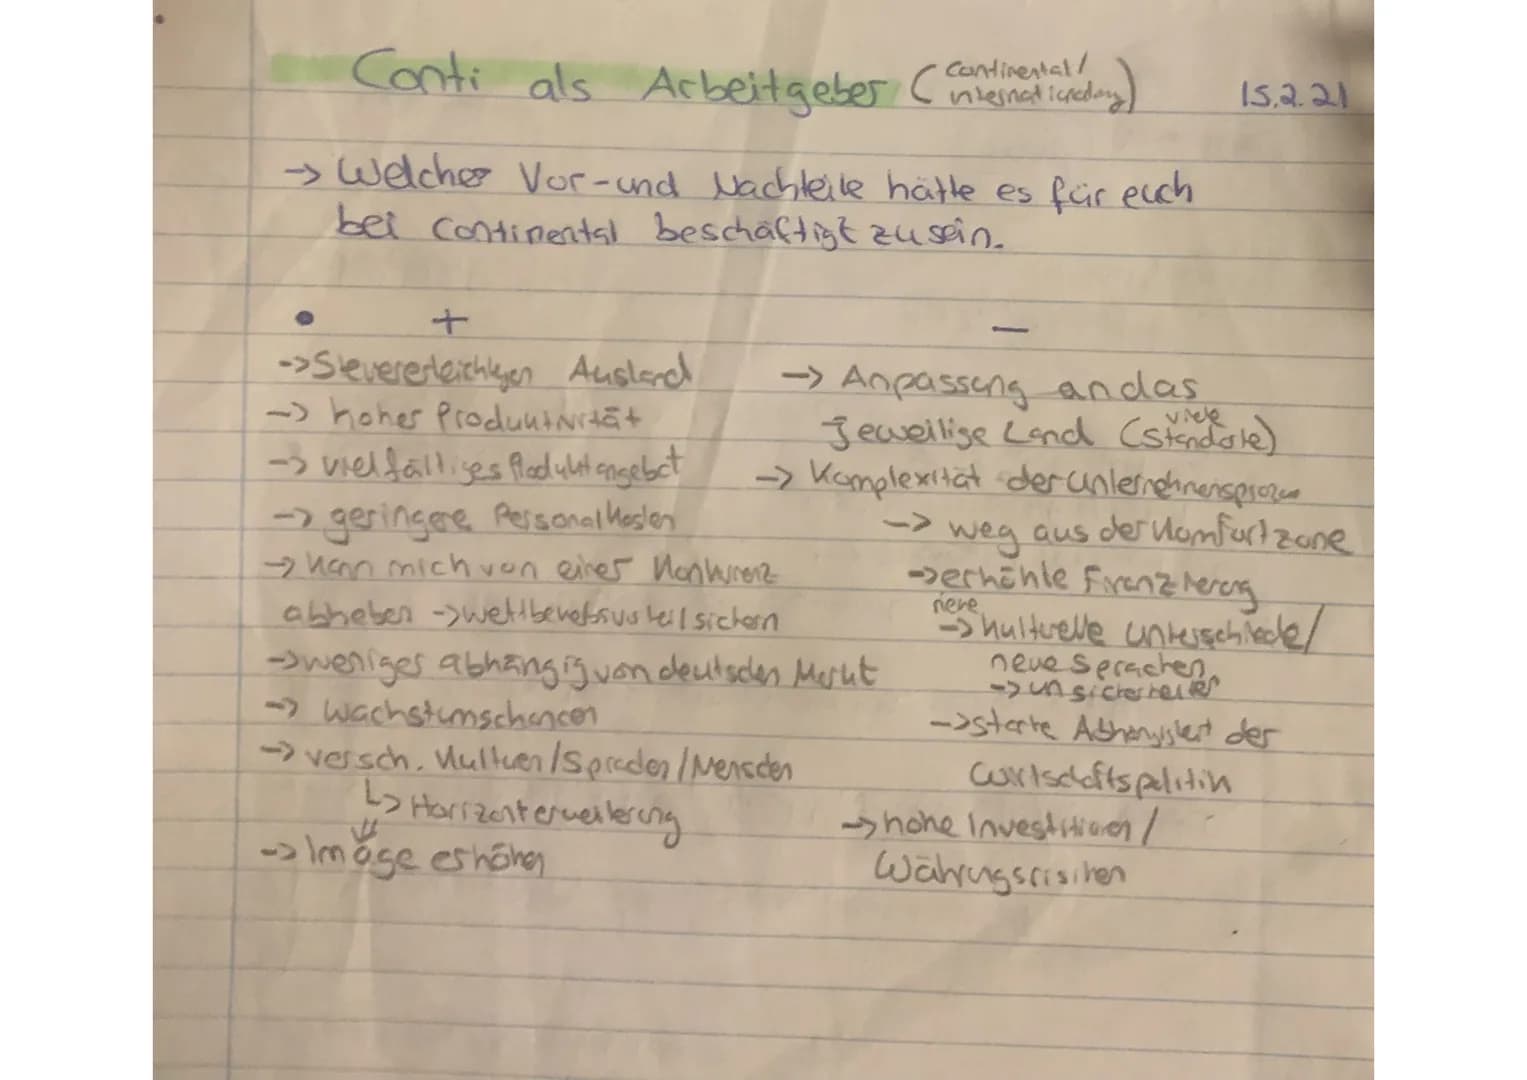 Conti als Arbeitgeber (Continental/
15.2.21
→ Welcher Vor-und Nachteile hätte es für euch
bei Continental beschäftigt zu sein.
• +
-> Steuererleichtgen Ausland
-> hoher Produktivität
-> vielfälliges Produktangebot
-> geringere Personalkosten
-> kann mich von einer Konkurrenz
abheben -> wettbewerbsvorteil sichern
-> weniger abhängig von deutschen Markt
-> Wachstumschancen
-> versch. Kulturen/Sprachen/Menschen
↳ Horizonterweiterung
-> Image erhöhen
−
-> Anpassung an das
jeweilige Land (viele Standorte)
-> Komplexität der Unternehmensprozesse
-> weg aus der Komfortzone
-> erhöhte Finanzierung
neue
-> kulturelle Unterschiede/
neue Sprachen
-> unsicherheiten
-> starke Abhängigkeit der
Wirtschaftspolitik
-> hohe Investitionen/
Währungsrisiken